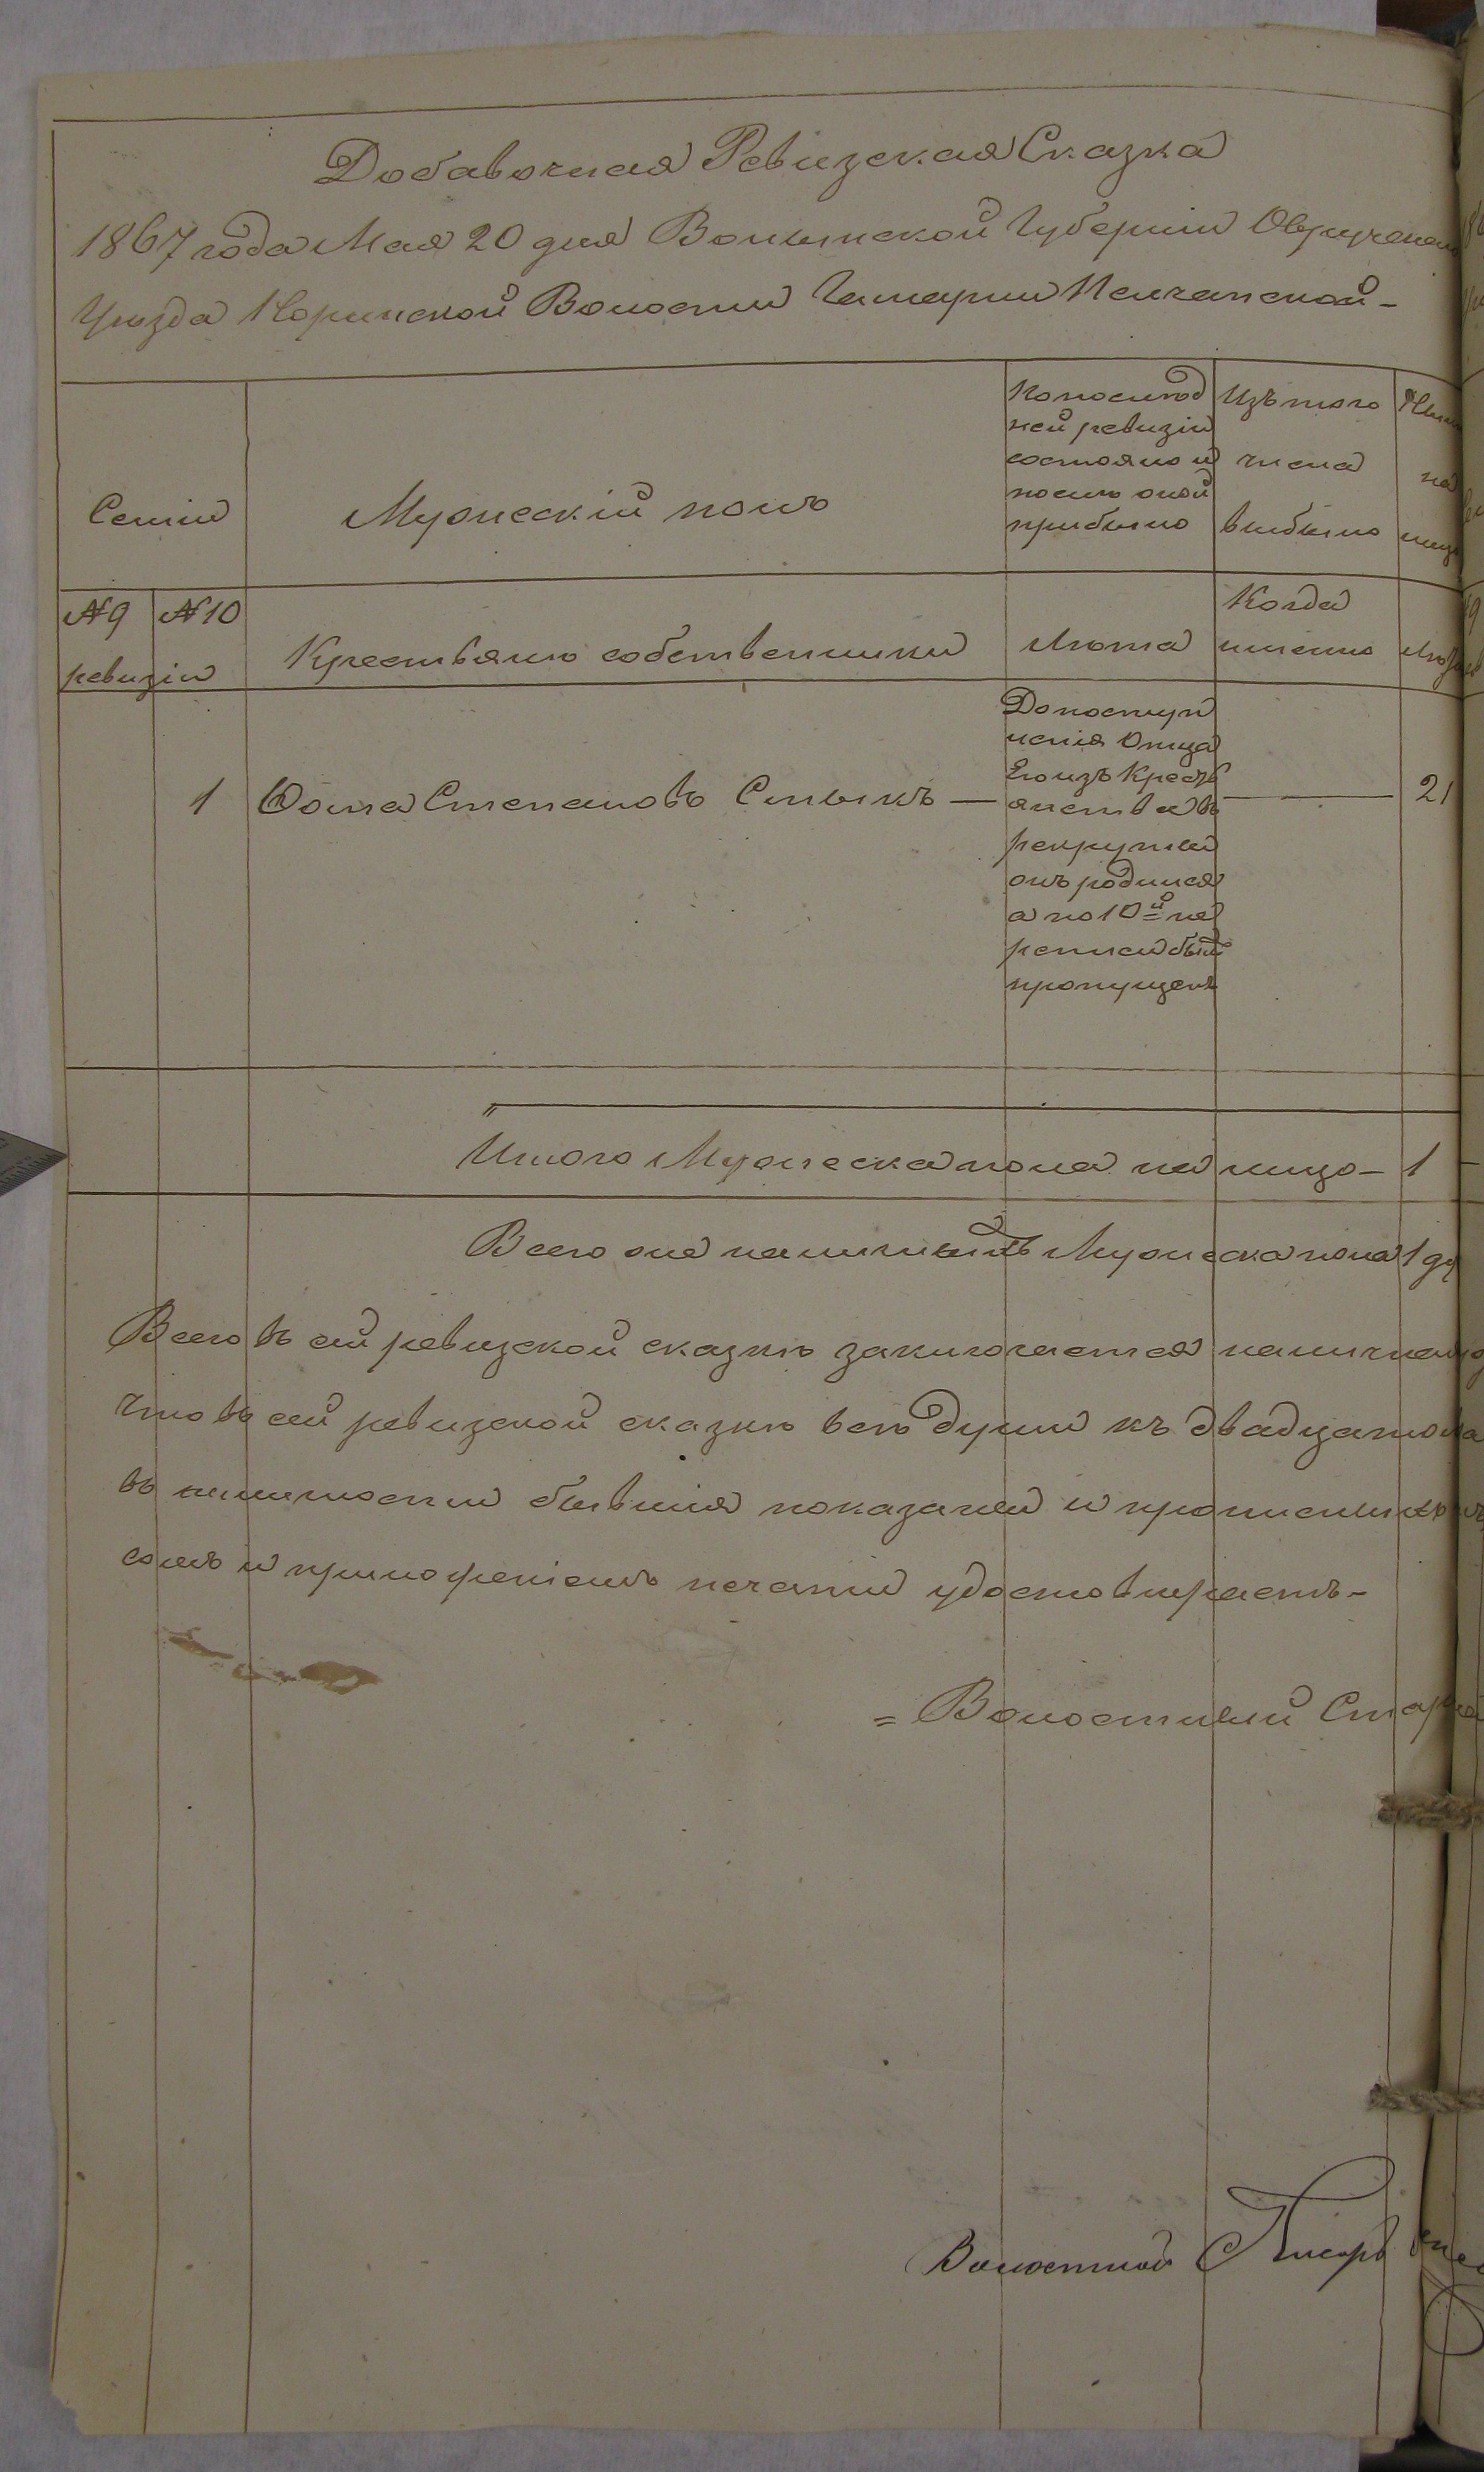 Добавочная Ревизская Сказка
1867 года Мая 20 дня Волынской Губерніи Овручскаго
Уѣзда Норинской Волости Гмарии Пенчанской -
Семіи
Мужескій полъ
По послѣд
ней ревизіи
состояло и
послѣ оной
прибыло
Изъ того
числа
выбыло
на
лицо
№ 9 № 10
ревизіи
Крестьяне собственники
Лѣта
Когда
именно
Лѣта
1 Ѳома Степановъ Смыкъ —
До поступ
ленія Отца
Его изъ Кресть
янства въ
рекруты
онъ родился
а по 10й пе
реписи былъ
пропущенъ
21
Итого Мужеска пола на лицо - 1
Всего оне наличныхъ Мужеска пола 1 ду
Всего въ сей ревизской сказкѣ заключается наличнаго
Что въ сей ревизской сказкѣ всѣ души къ двадцатому
въ наличности бывшія показаны и прописныхъ
сомъ и приложеніемъ печати удостовѣряетъ -
= Волостный Стар
Волостной Писарь